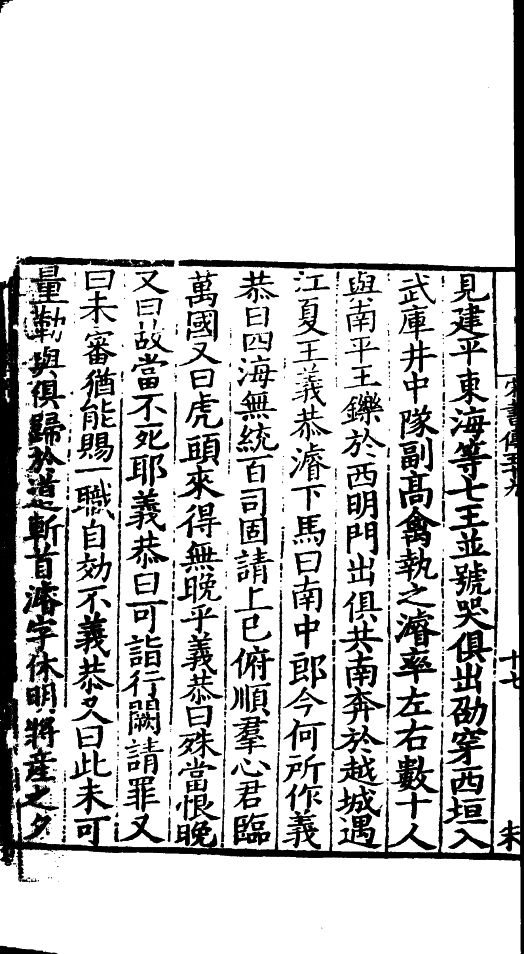 宋書傳五十九
十七
見建平東海等七王並號哭俱出劭穿西垣入
武庫井中隊副高禽執之濬率左右數十人
與南平王鑠於西明門出俱共南奔於越城遇
江夏王義恭濬下馬曰南中郎今何所作義
恭曰四海無統百司固請上已俯順羣心君臨
萬國又曰虎頭來得無晚乎義恭曰殊當恨晚
又曰故當不死耶義恭曰可詣行闕請罪又
曰未審猶能賜一職自効不義恭又曰此未可
量勒與俱歸於道斬首濬字休明將産之夕